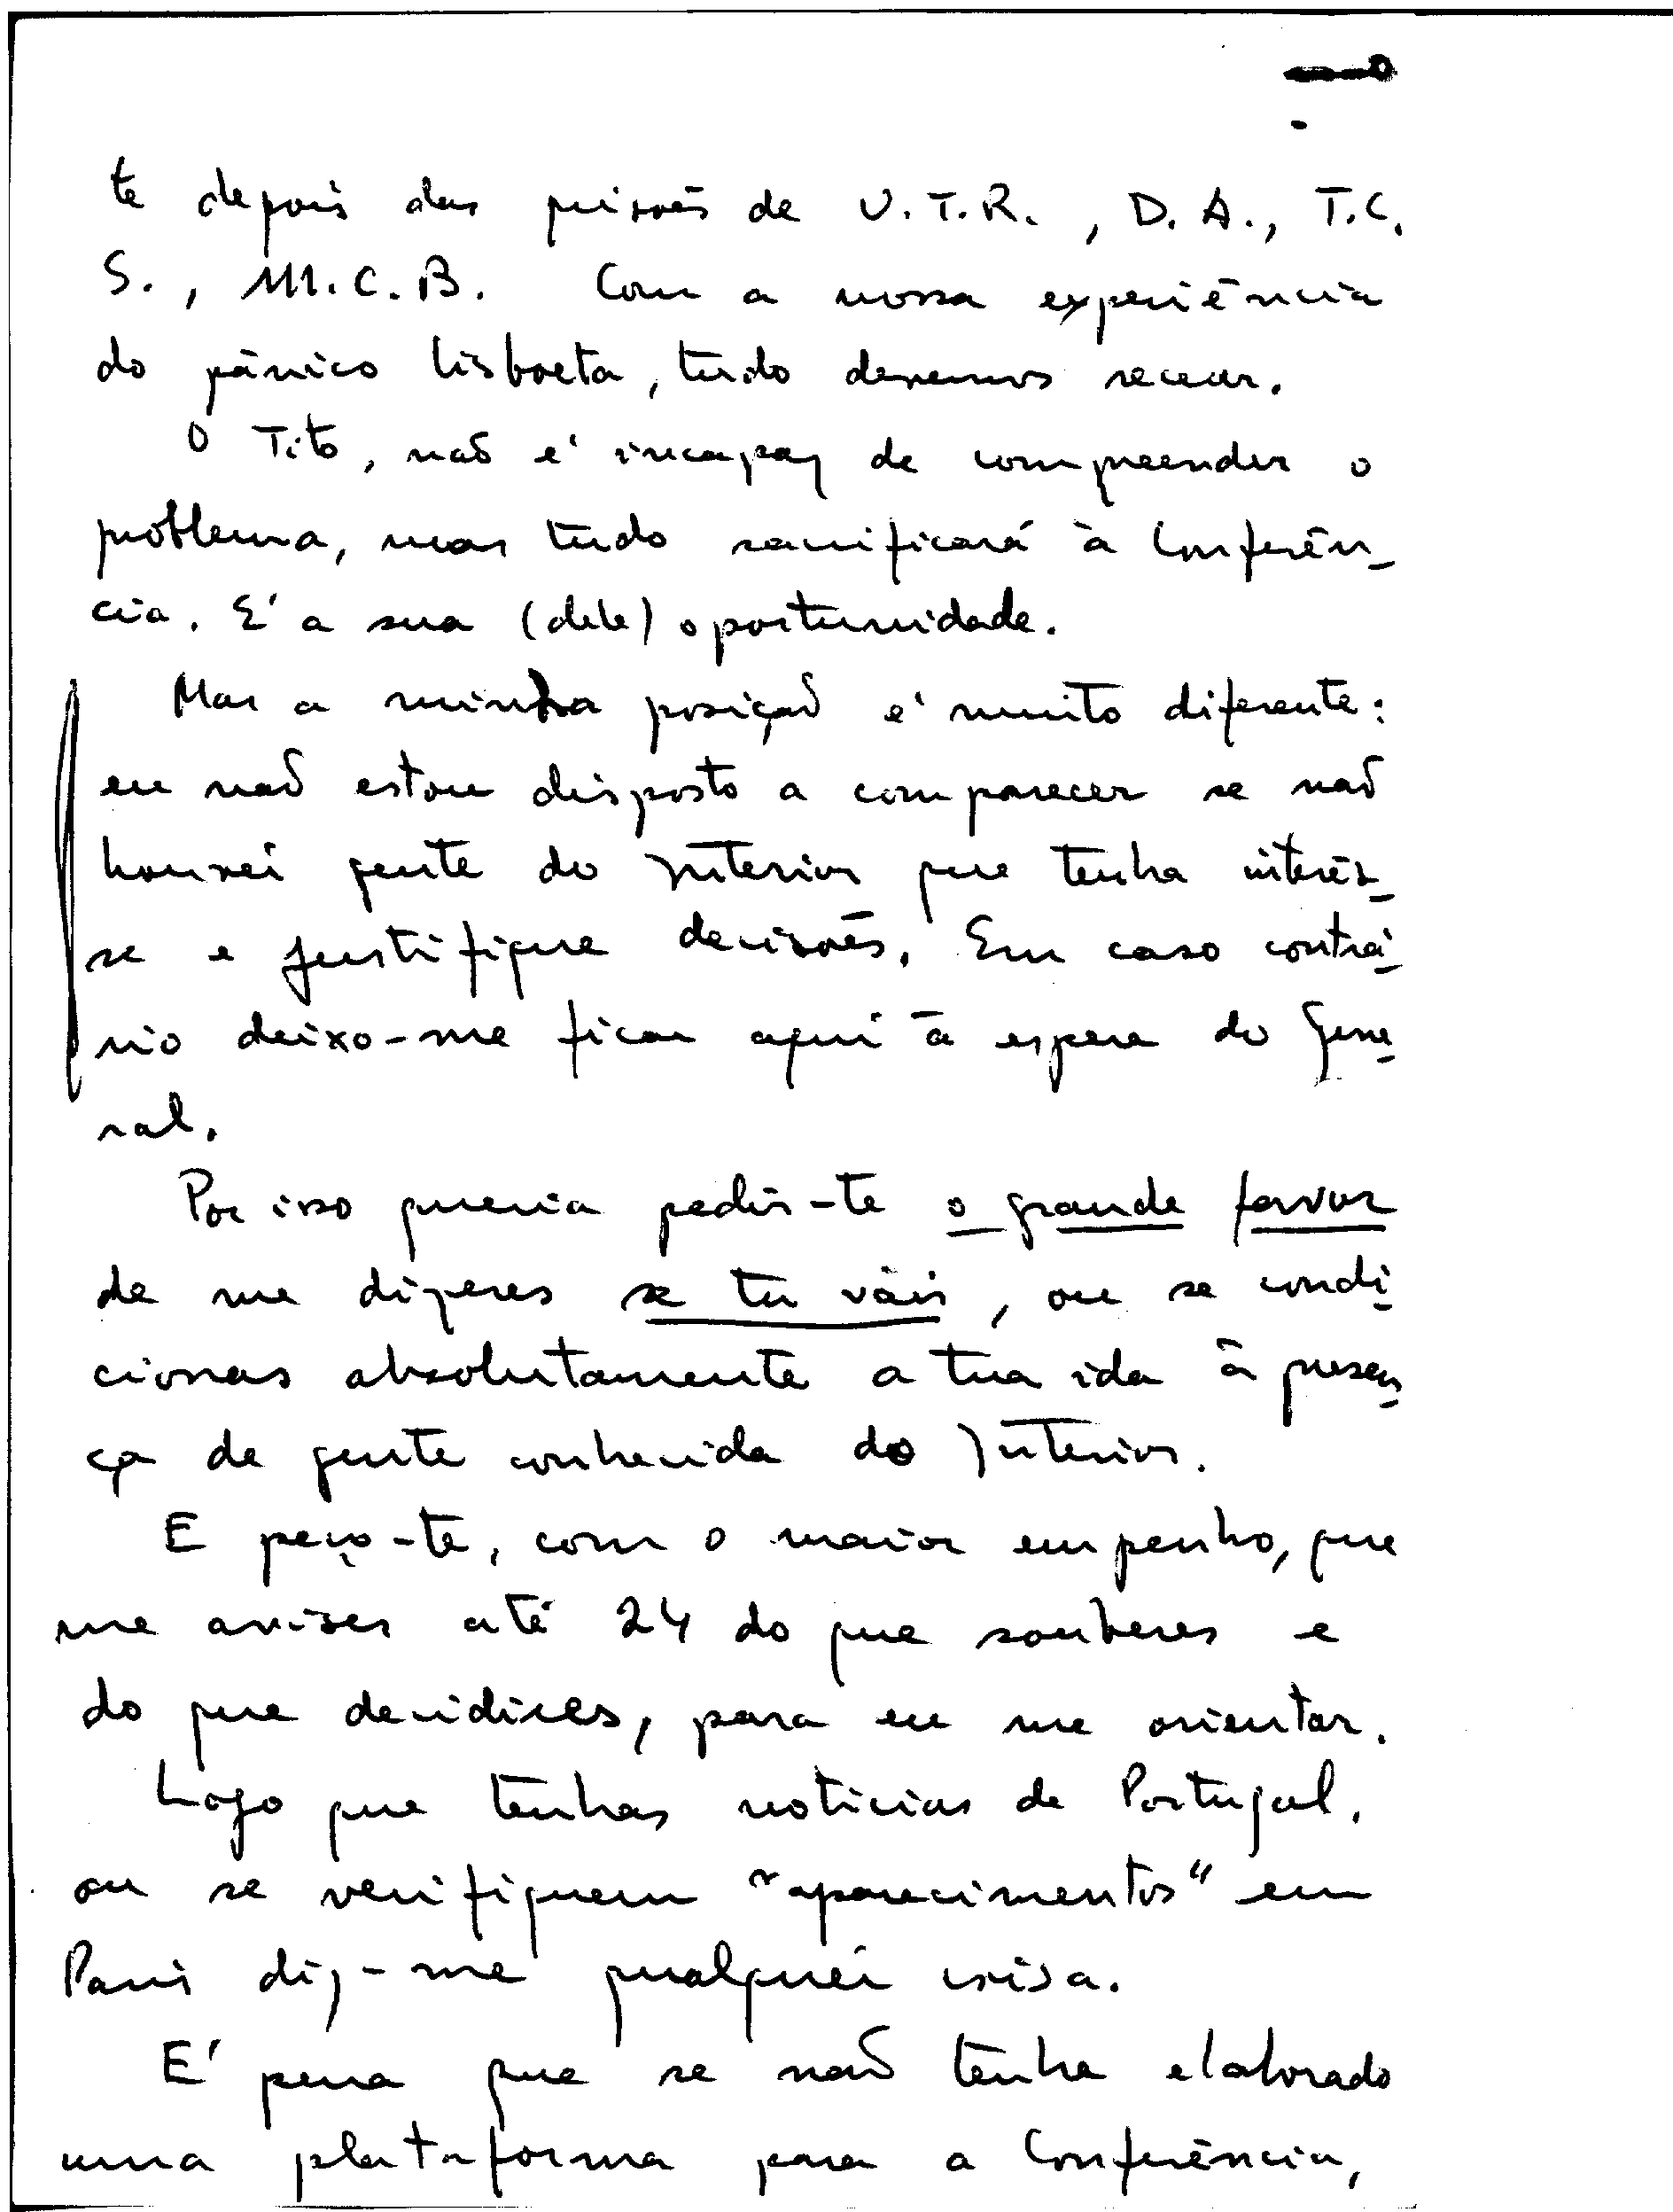 te depois das prisões de U.T.R., D.A., T.C.
S., M.C.B. Com a nossa experiência
do pânico lisboeta, tudo devemos recear.
O Tito, não é incapaz de compreender o
problema, mas tudo sacrificará à Conferên-
cia. É a sua (dele) oportunidade.
Mas a minha posição é muito diferente:
eu não estou disposto a comparecer se não
houver gente do Interior que tenha interês-
se e justifique decisões. Em caso contrá-
rio deixo-me ficar aqui à espera do Gene-
ral.
Por isso queria pedir-te o grande favor
de me dizeres se tu vais, ou se condi-
cionas absolutamente a tua ida à presen-
ça de gente conhecida do Interior.
E peço-te, com o maior empenho, que
me avises até 24 do que souberes e
do que decidires, para eu me orientar.
Logo que tenhas noticias de Portugal,
ou se verifiquem "aparecimentos" em
Paris diz-me qualquer coisa.
É pena que se não tenha elaborado
uma plataforma para a Conferência,